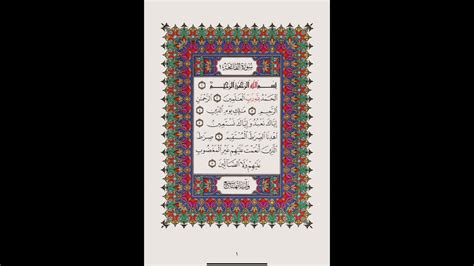 سورة الفاتحة ١
بسم الله الرحمن الرحيم ١
الحمد لله رب العلمين ٢ الرحمن
الرحيم ٣ ملك يوم الدين ٤
إياك نعبد وإياك نستعين ٥
اهدنا الصرط المستقيم ٦ صرط
الذين أنعمت عليهم غير المغضوب
عليهم ولا الضالين ٧
١